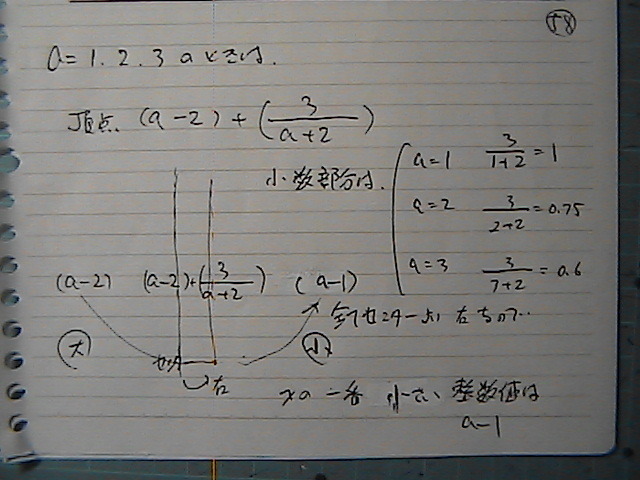 58
a = 1. 2. 3 のときは.
頂点. (a-2) + (3/(a+2))
小数部分は.
a=1 3/(1+2) = 1
a=2 3/(2+2) = 0.75
a=3 3/(7+2) = 0.6
(a-2) (a-2)+(3/(a+2)) (a-1)
大 センター 小
右
xの一番 小さい 整数値は
a-1